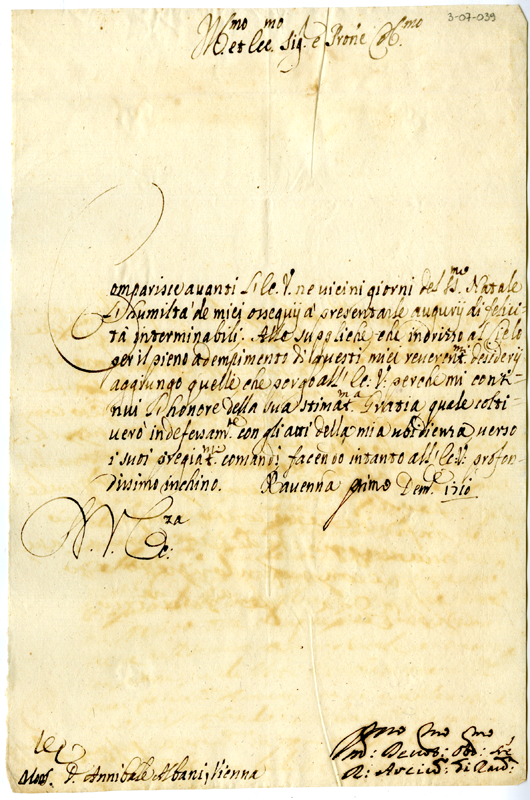 3-07-039
Ill.mo et Ecc. Sig.e e Prone Col.mo
Comparisce avanti l'Ecc. V. ne vicini giorni del S.mo Natale
l'humiltà de miei ossequij à presentarle augurij di felici-
tà interminabili. Alle suppliche che indrizzo al Cielo
per il pieno adempimento di questi miei reverent.mi desiderij
aggiungo quelle che porgo all'Ecc. V. perche mi conti-
nui l'honore della sua stimat.ma Gratia quale colti-
verò indefessam.te con gli atti della mia ubbidienza verso
i suoi pregiat.mi comandi facendo intanto all'Ecc. V. profon-
dissimo inchino. Ravenna primo Dem.e 1710
Mons. D. Annibale Albani, Vienna
D: Arciv.o di Rav.a